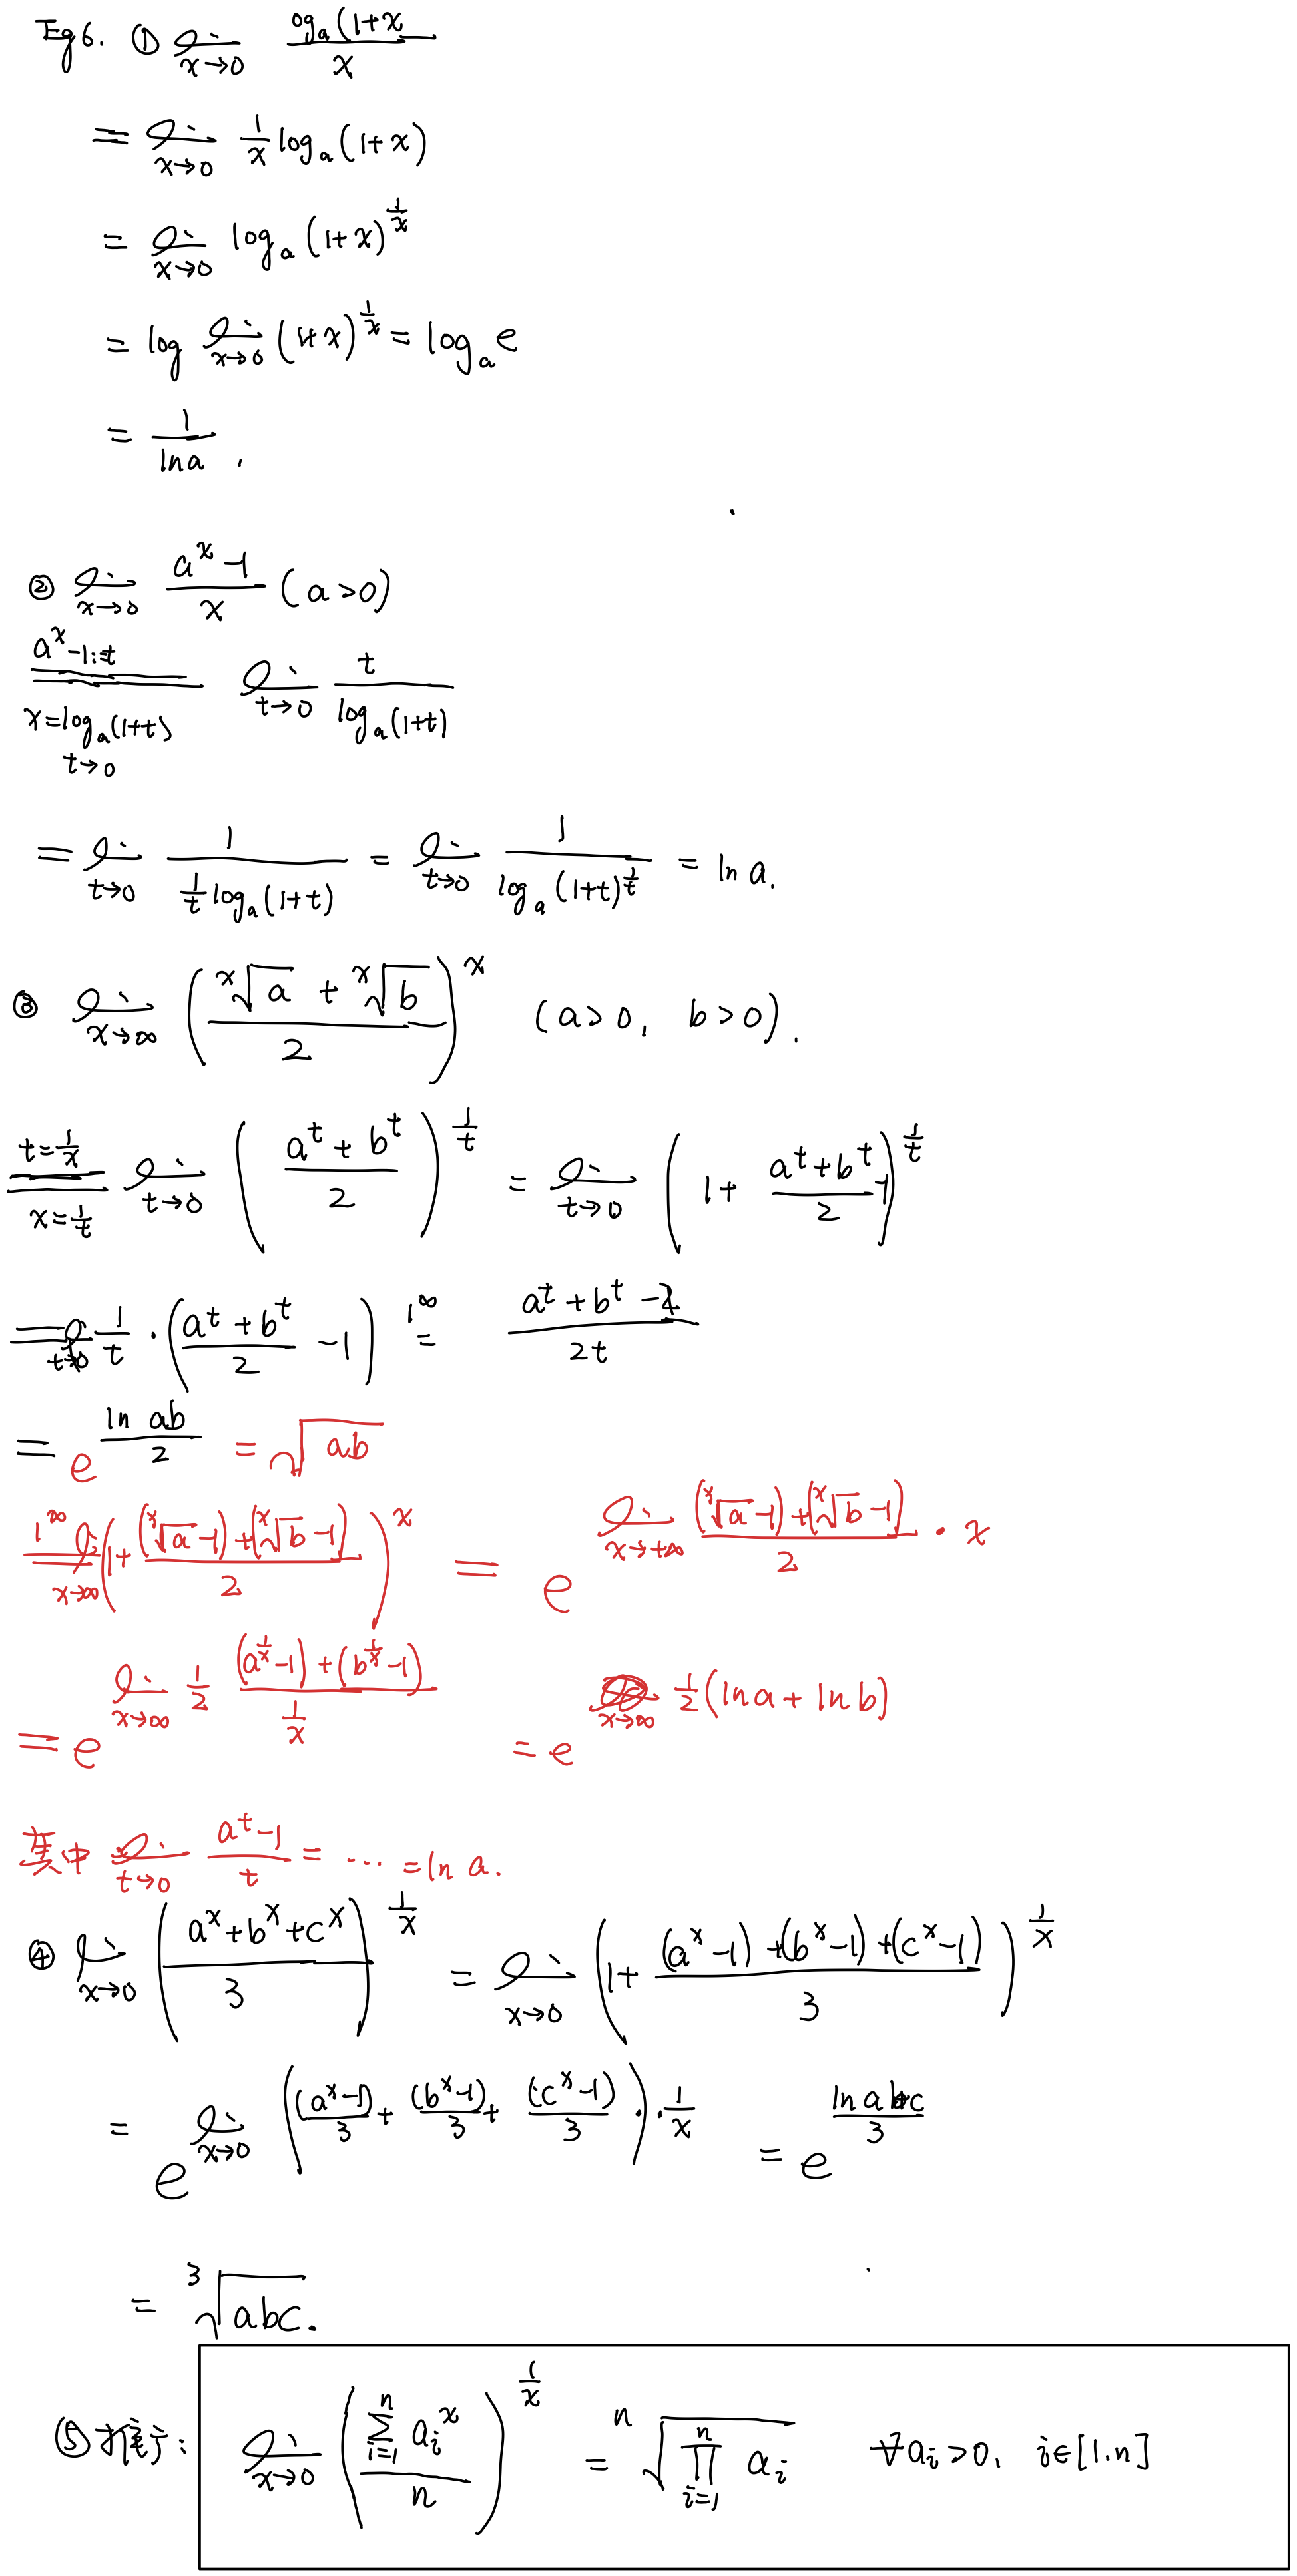 Eg 6. ① lim_{x→0} \frac{og_a(1+x}{x}
= lim_{x→0} \frac{1}{x} log_a(1+x)
= lim_{x→0} log_a(1+x)^{\frac{1}{x}}
= log lim_{x→0} (1+x)^{\frac{1}{x}} = log_a e
= \frac{1}{ln a} .
② lim_{x→0} \frac{a^x-1}{x} (a>0)
\xlongequal[x=log_a(1+t), t→0]{a^x-1:=t} lim_{t→0} \frac{t}{log_a(1+t)}
= lim_{t→0} \frac{1}{\frac{1}{t} log_a(1+t)} = lim_{t→0} \frac{1}{log_a(1+t)^{\frac{1}{t}}} = ln a.
③ lim_{x→∞} (\frac{\sqrt[x]{a} + \sqrt[x]{b}}{2})^x (a>0, b>0).
\xlongequal[x=\frac{1}{t}]{t=\frac{1}{x}} lim_{t→0} (\frac{a^t+b^t}{2})^{\frac{1}{t}} = lim_{t→0} (1+\frac{a^t+b^t}{2}-1)^{\frac{1}{t}}
= lim_{t→0} \frac{1}{t} · (\frac{a^t+b^t}{2} -1) \overset{1^∞}{=} \frac{a^t+b^t-2}{2t}
= e^{\frac{ln ab}{2}} = \sqrt{ab}
\overset{1^∞}{=} lim_{x→∞} (1+\frac{(\sqrt[x]{a}-1)+(\sqrt[x]{b}-1)}{2})^x = e^{lim_{x→+∞} \frac{(\sqrt[x]{a}-1)+(\sqrt[x]{b}-1)}{2} · x}
= e^{lim_{x→∞} \frac{1}{2} \frac{(a^{\frac{1}{x}}-1)+(b^{\frac{1}{x}}-1)}{\frac{1}{x}}} = e^{\frac{1}{2}(ln a+ln b)}
其中 lim_{t→0} \frac{a^t-1}{t} = ··· = ln a.
④ lim_{x→0} (\frac{a^x+b^x+c^x}{3})^{\frac{1}{x}} = lim_{x→0} (1+\frac{(a^x-1)+(b^x-1)+(c^x-1)}{3})^{\frac{1}{x}}
= e^{lim_{x→0} (\frac{(a^x-1)}{3}+\frac{(b^x-1)}{3}+\frac{(c^x-1)}{3})·\frac{1}{x}} = e^{\frac{ln abc}{3}}
= \sqrt[3]{abc}.
⑤ 推广: lim_{x→0} (\frac{\sum_{i=1}^{n} a_i^x}{n})^{\frac{1}{x}} = \sqrt[n]{\prod_{i=1}^{n} a_i} ∀a_i>0, i∈[1.n]